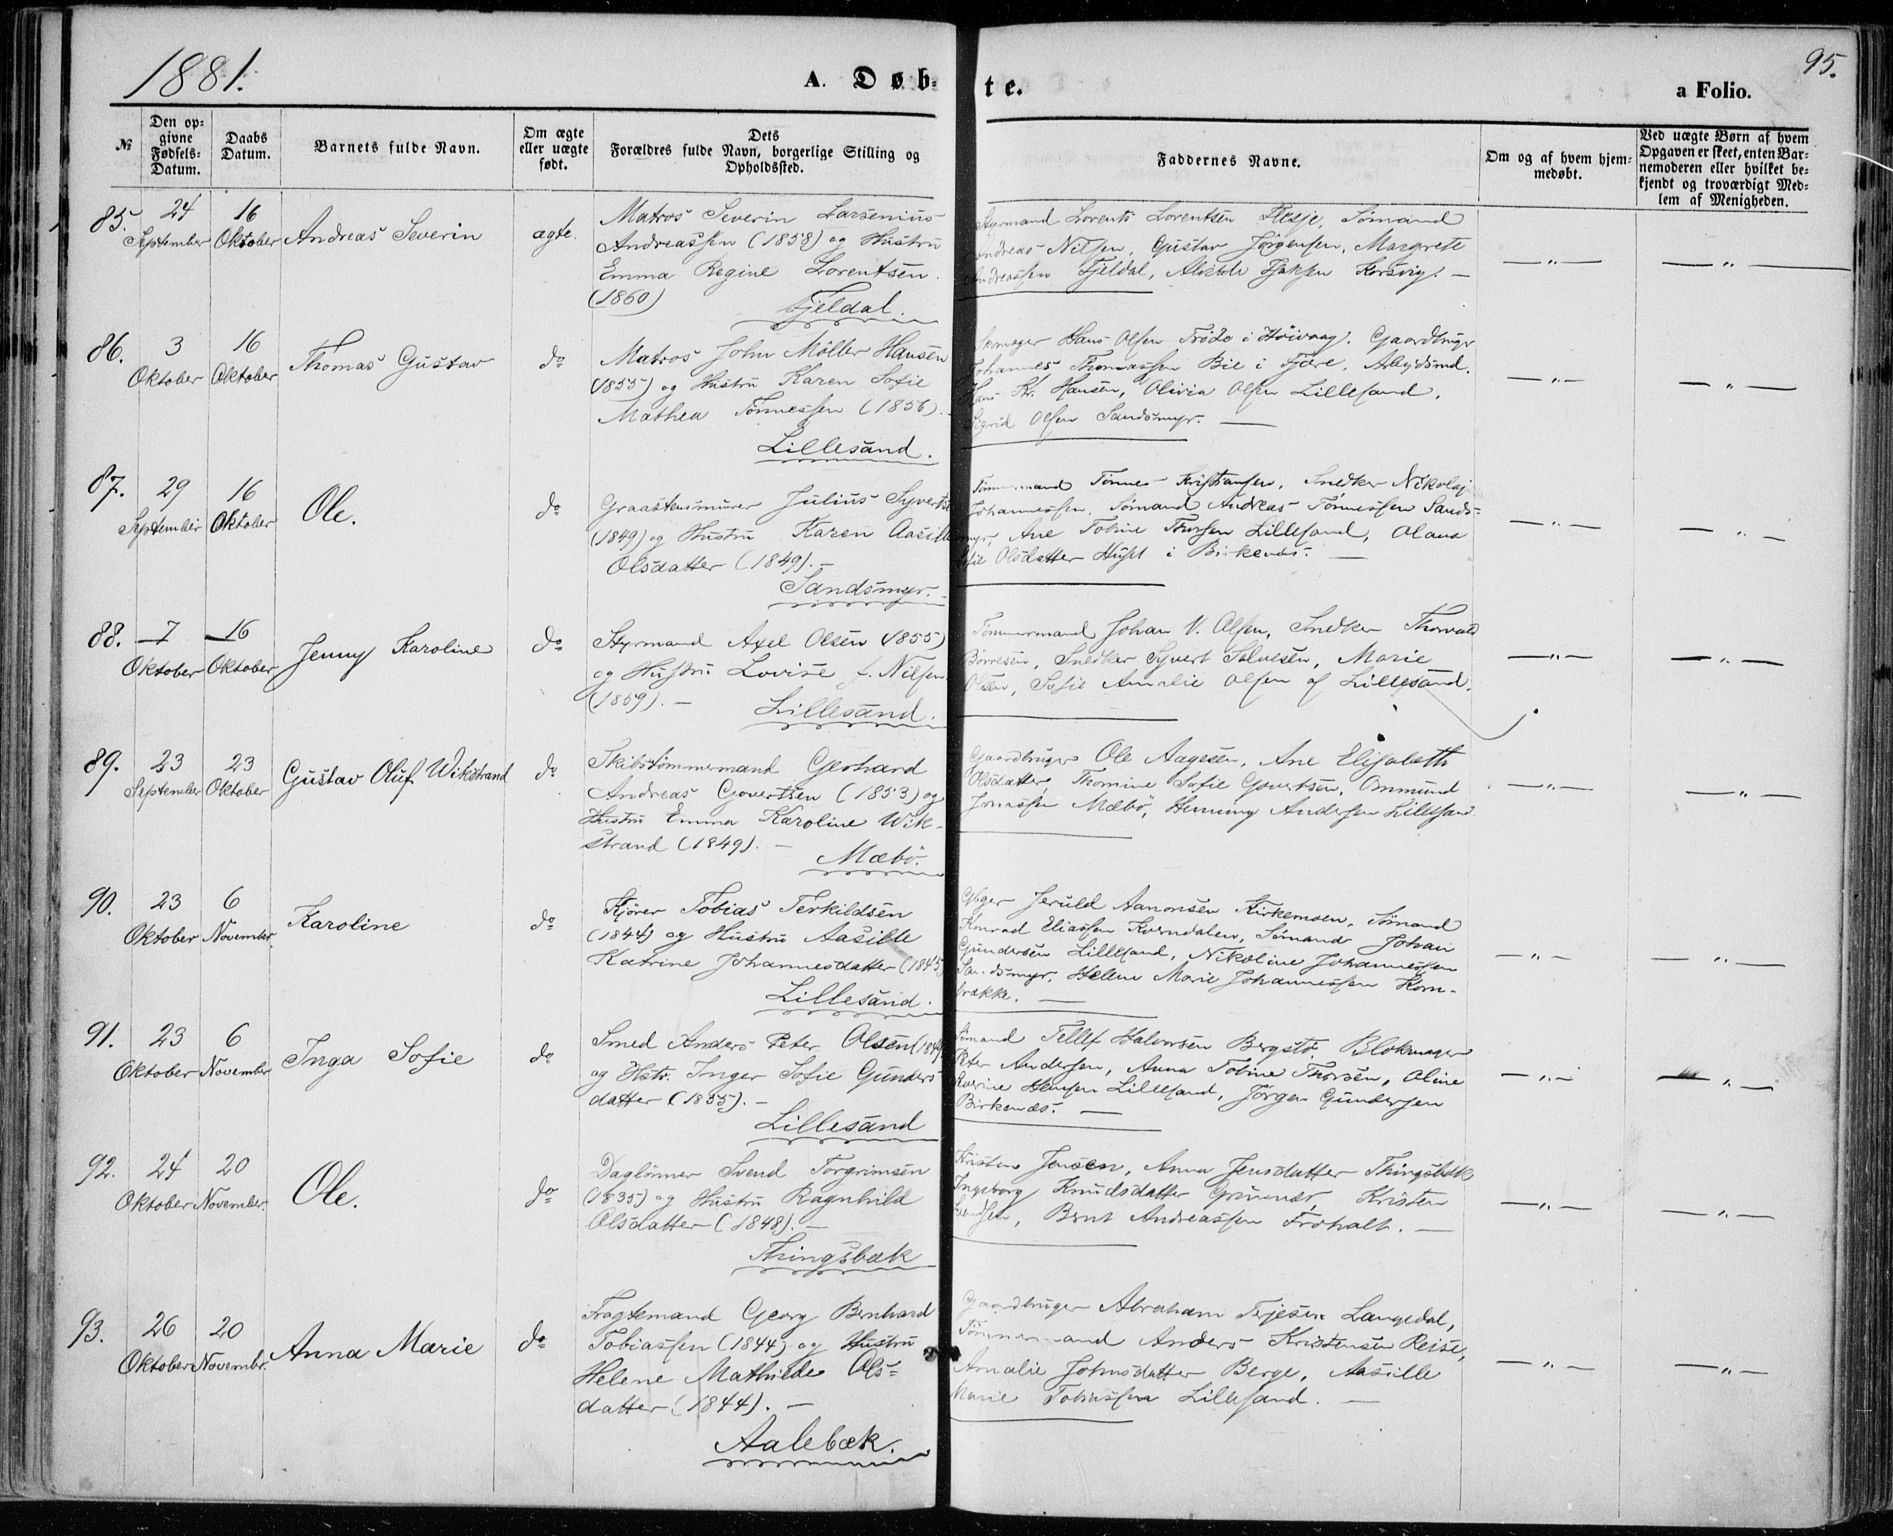 1881.
A. Døb-
te.
a Folio.
95.
№
Den op-
givne
Fødsels-
Datum.
Daabs
Datum.
Barnets fulde Navn.
Om ægte
eller uægte
født.
Dets
Forældres fulde Navn, borgerlige Stilling og
Opholdssted.
Faddernes Navne.
Om og af hvem hjem-
medøbt.
Ved uægte Børn af hvem
Opgaven er skeet, enten Bar-
nemoderen eller hvilket be-
kjendt og troværdigt Med-
lem af Menigheden.
85. 24 September 16 Oktober Andreas Severin ægte.
Matros Severin Larsenius
Andreassen (1858) og Hustru
Emma Regine Lorentsen.
(1860)
Fjeldal.
Styrmand Lorents Lorentsen Flesje, Sømand
Andreas Nilsen, Gustav Jørgensen, Margrete
Andreassen Fjeldal, Korsvig. —
— „ —
— „ —
86. 3 Oktober 16 Oktober Thomas Gustav do
Matros John Möller Hansen
(1855) og Hustru Karen Sofie
Mathea Tönnessen (1856).
Lillesand.
Hans Olsen Trøde i Höivaag, Gaardbruger
Johannes Thomassen Bie i Fjære, Arbejdsmd.
Hans Kr. Hansen, Olivia Olsen Lillesand,
Sigrid Olsen Sandsmyr. —
— „ —
— „ —
87. 29 September 16 Oktober Ole. do
Graastensmurer Julius Syverts
(1849) og Hustru Karen Aasille
Olsdatter (1849). —
Sandsmyr.
Tømmermand Tönnes Kristiansen, Snedker Nikolaj
Johannessen, Sømand Andreas Tönnessen Sands-
myr, Ane Tobine Thorsen Lillesand, Olava
Sofie Olsdatter i Birkenæs. —
— „ —
— „ —
88. 7 Oktober 16 Oktober Jenny Karoline do
Styrmand Axel Olsen (1855)
og Hustru Lovise f. Nilsen
(1859). —
Lillesand.
Tømmermand Johan V. Olsen, Snedker Thorvald
Börresen, Snedker Syvert Salvesen, Marie
Olsen, Sofie Amalie Olsen af Lillesand.
— „ —
— „ —
89. 23 September 23 Oktober Gustav Oluf Wikstrand do
Skibstömmermand Gerhard
Andreas Govertsen (1853) og
Hustru Emma Karoline Wik-
strand (1849). —
Mæbö.
Gaardbruger Ole Aagesen, Ane Elisabeth
Olsdatter, Thomine Sofie Govertsen, Ommund
Jonassen Mæbö, Henning Andersen Lillesand
— „ —
— „ —
90. 23 Oktober 6 November Karoline do
Kjörer Tobias Terkildsen
(1844) og Hustru Aasille
Katrine Johannesdatter (1845)
Lillesand.
Jeruld Aanonsen Kirkemoen, Sømand
Konrad Eliassen Korndalen, Sømand Johan
Gundersen Lillesand, Nikoline Johannessen
Sandsmyr, Helene Marie Johannessen Korn-
brække. —
— „ —
— „ —
91. 23 Oktober 6 November Inga Sofie do
Smed Anders Peter Olsen (184
og Hstr. Inger Sofie Gunders
datter (1855). —
Lillesand
Sømand Tellef Halvorsen Bergstö, Blokmager
Peter Andersen, Anna Tobine Thorsen, Oline
Katrine Hansen Lillesand, Jörgen Gundersen
Birkenæs. —
— „ —
— „ —
92. 24 Oktober 20 November. Ole. do
Daglönner Svend Torgrimsen
(1835) og Hustru Ragnhild
Olsdatter (1848). —
Thingsbæk
Kristen Jensen, Anna Jensdatter Thingsbæk
Ingeborg Knudsdatter Grimnes, Kristen
Bernt Andreassen Froholt. —
— „ —
— „ —
93. 26 Oktober 20 Novembr. Anna Marie do
Fragtemand Georg Bernhard
Tobiassen (1844) og Hustru
Helene Mathilde Ols-
datter (1844). —
Aalebæk.
Gaardbruger Abraham Terjesen Langedal,
Tømmermand Anders Kristensen Reise,
Amalie Johnsdatter Berge, Aasille
Marie Tobiassen Lillesand. —
— „ —
— „ —